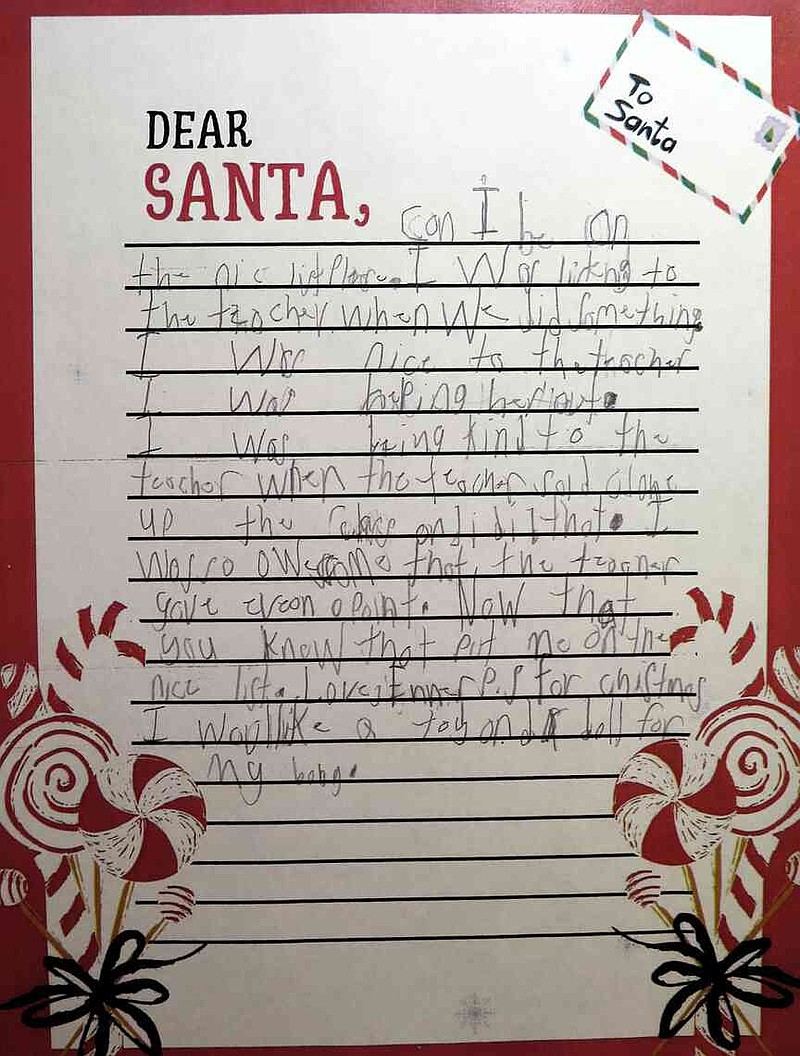 To
Santa
DEAR
SANTA,
Can I be on
the nic list Please. I Was listing to
the teacher when We did something.
I Was nice to the teacher
I was helping
I was being kind to the
teacher when the teacher said
up the and i did that. I
Was so awesome that the
gave a point. Now that
you know that put me on the
nice list. Love, P.S for
I like a toy and a doll for
my baby.